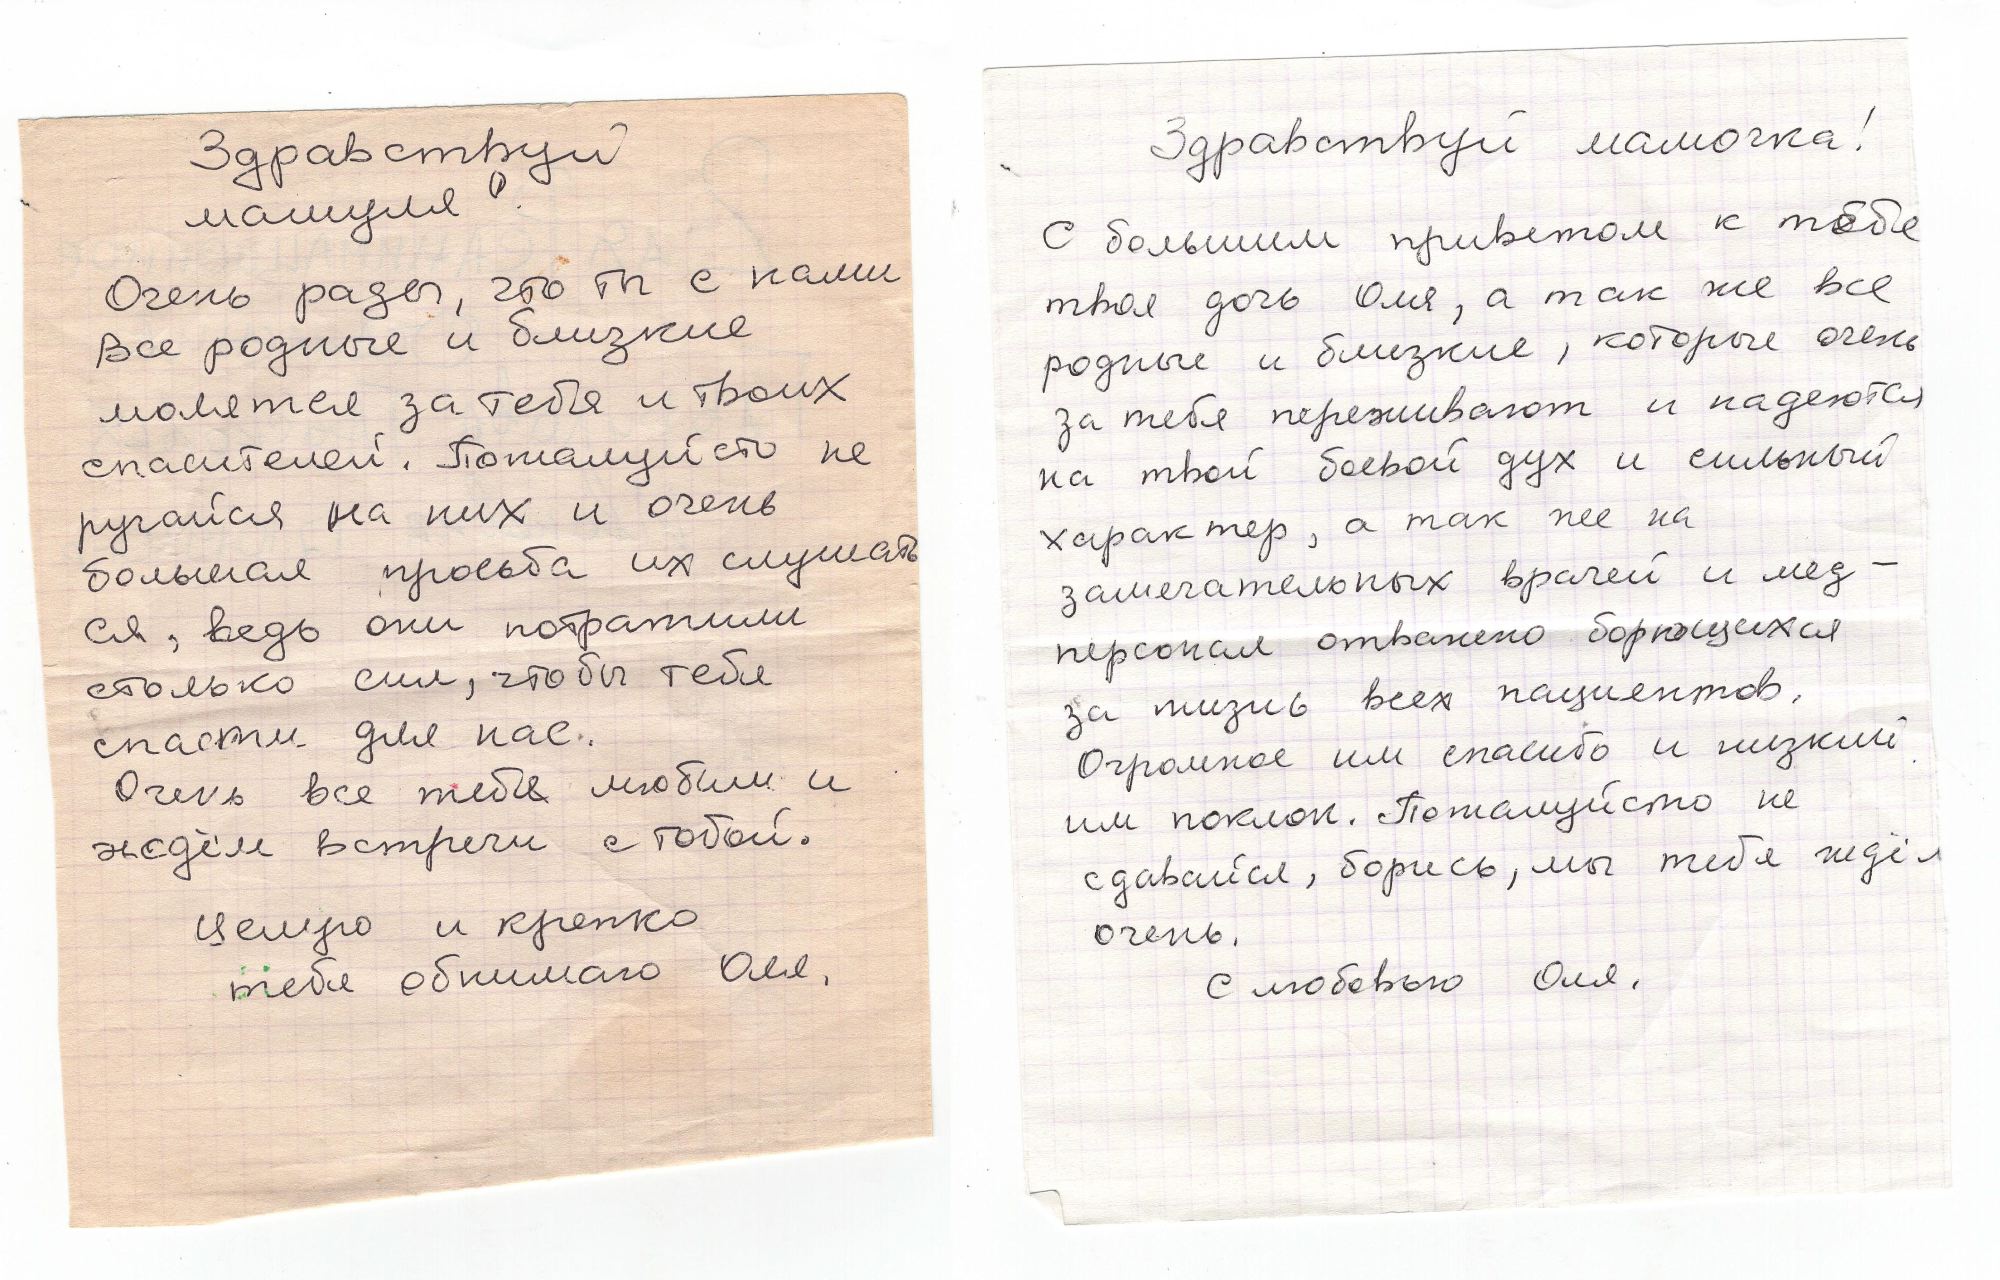 Здравствуй
мамуля!
Очень рады, что ты с нами
Все родные и близкие
молятся за тебя и твоих
спасителей. Пожалуйсто не
ругайся на них и очень
большая просьба их слушать
ся, ведь они потратили
столько сил, чтобы тебя
спасти для нас.
Очень все тебя любим и
ждём встречи с тобой.
Целую и крепко
тебя обнимаю Оля.
Здравствуй мамочка!
С большим приветом к тебе
твоя дочь Оля, а так же все
родные и близкие, которые очень
за тебя переживают и надеются
на твой боевой дух и сильный
характер, а так же на
замечательных врачей и мед-
персонал отважно борющихся
за жизнь всех пациентов.
Огромное им спасибо и низкий
им поклон. Пожалуйсто не
сдавайся, борись, мы тебя ждём
очень.
С любовью Оля.